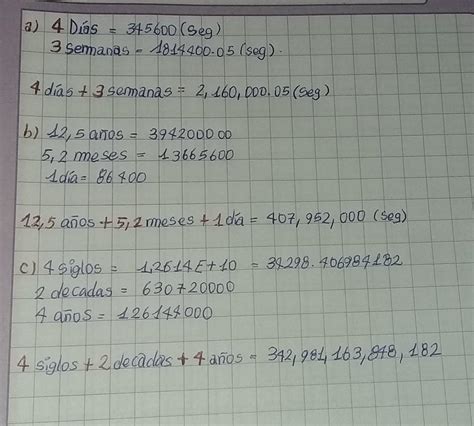 a) 4 Días = 345600 (seg)
3 semanas = 1814400.05 (seg).
4 días + 3 semanas = 2,160,000.05 (seg)
b) 12,5 años = 394200000
5,2 meses = 13665600
1 día = 86400
12,5 años + 5,2 meses + 1 día = 407,952,000 (seg)
c) 4 siglos = 1,2614E+10 = 34298.406984182
2 decadas = 630720000
4 años = 126144000
4 siglos + 2 decadas + 4 años = 342,981,163,848,182